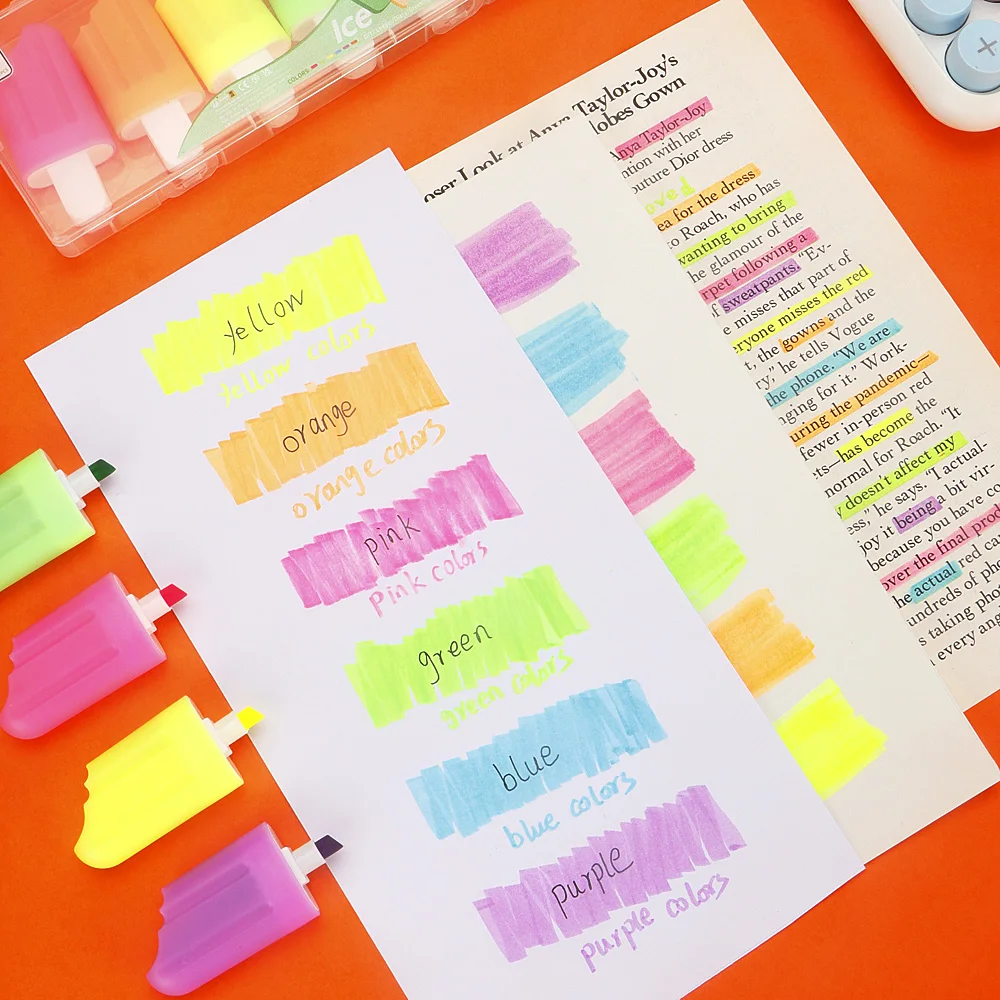 Ice
COLORS:
yellow
yellow colors
orange
orange colors
pink
pink colors
green
green colors
blue
blue colors
purple
purple colors
oser Look at Anya Taylor-Joy's
lobes Gown
Anya Taylor-Joy
ntion with her
outure Dior dress
oved
ea for the dress
to Roach, who has
wanting to bring
he glamour of the
rpet following a
f sweatpants. “Ev-
e misses that part of
eryone misses the red
t, the gowns and the
ry,” he tells Vogue
the phone. “We are
nging for it.” Work-
uring the pandemic—
fewer in-person red
ts—has become the
normal for Roach. “It
y doesn't affect my
ess,” he says. “I actual-
joy it being a bit vir-
because you have co
over the final prod
he actual red ca
undreds of pho
s taking pho
every ang